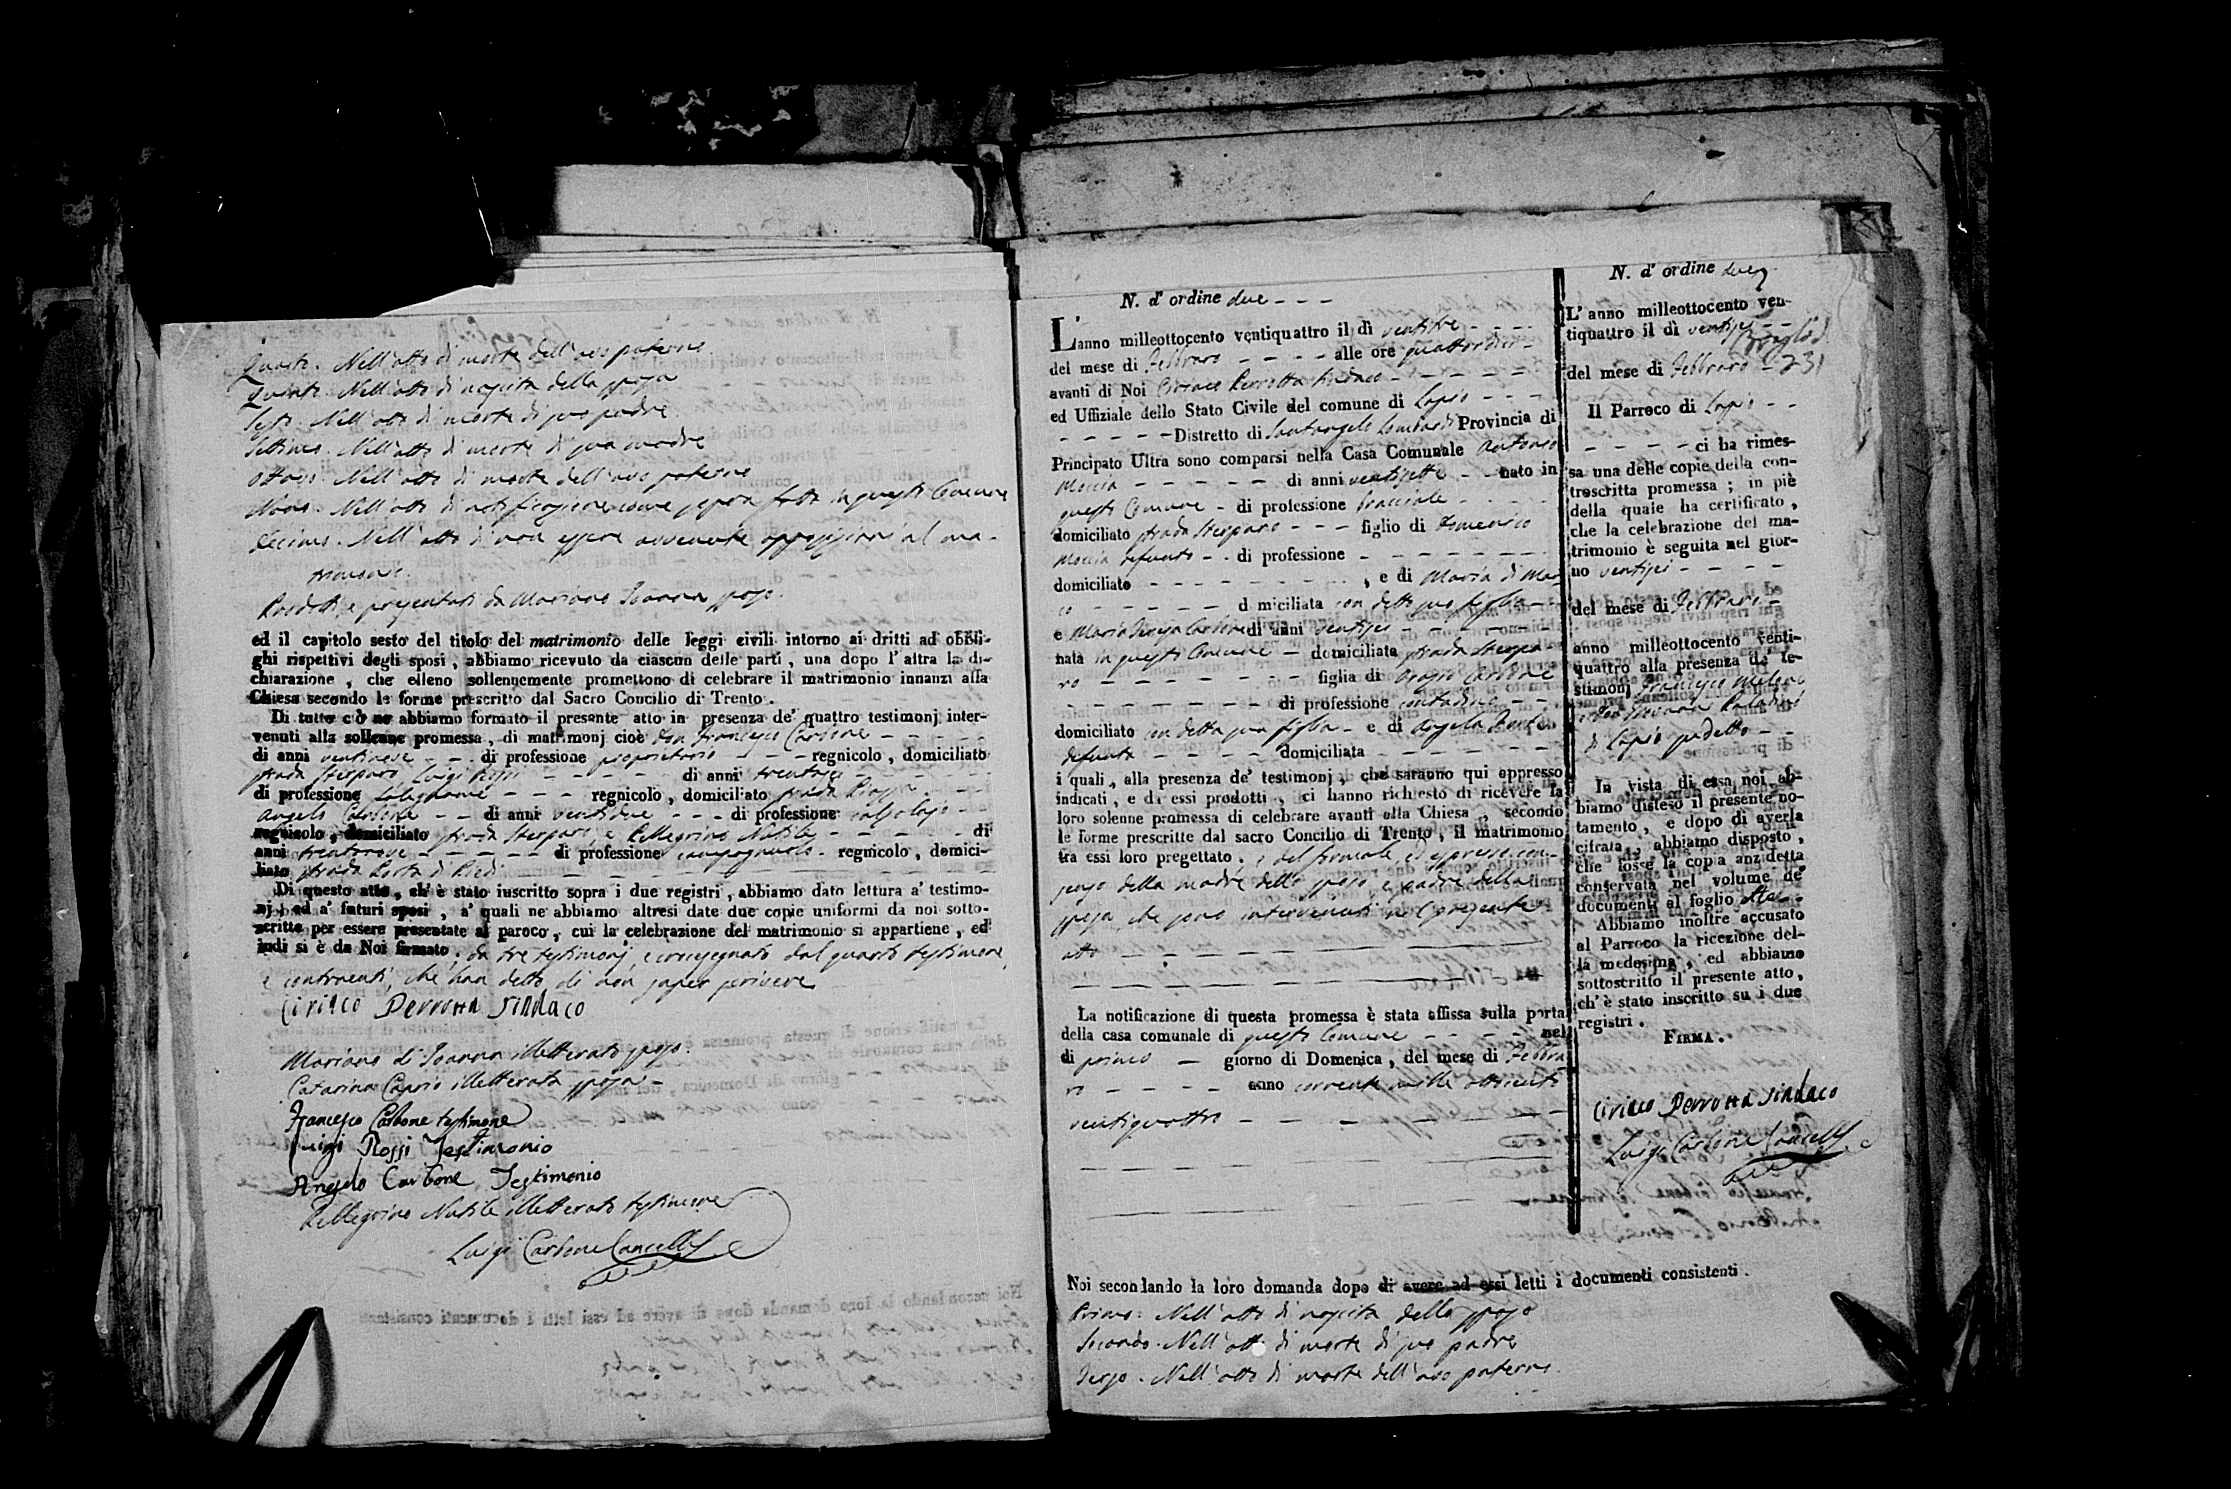 Quarto. Nell'atto di morte dell'avo paterno
Quinto. Nell'atto di nascita della sposa
Sesto. Nell'atto di morte di suo padre
Settimo. Nell'atto di morte di sua madre
Ottavo. Nell'atto di morte dell'avo paterno
Nono. Nell'atto di notificazione come sopra fatta in questo Comune
Decimo. Nell'atto di non essere avvenuta opposizione al ma-
trimonio.
Prodotti e presentati da Mariano Ioanna sposo.
ed il capitolo sesto del titolo del matrimonio delle leggi civili intorno ai dritti ad obbli-
ghi rispettivi degli sposi, abbiamo ricevuto da ciascun delle parti, una dopo l'altra la di-
chiarazione, che elleno sollennemente promettono di celebrare il matrimonio innanzi alla
Chiesa secondo le forme prescritto dal Sacro Concilio di Trento.
Di tutto ciò ne abbiamo formato il presente atto in presenza de' quattro testimonj inter-
venuti alla sollenne promessa, di matrimonj cioè don Francesco Carbone - - - -
di anni ventinove - - di professione proprietario - - - regnicolo, domiciliato
strada Sterparo, Luigi Rossi - - - - di anni trentasei - - -
di professione falegname - - - regnicolo, domiciliato strada Piazza - - -
Angelo Carbone - - di anni ventidue - - - di professione calzolajo - -
regnicolo, domiciliato strada Sterparo, e Pellegrino Natile - - - - - di
anni trentanove - - - - - di professione campagnuolo - regnicolo, domici-
liato strada Porta di Piedi - - - - - -
Di questo atto, ch'è stato inscritto sopra i due registri, abbiamo dato lettura a' testimo-
nj, ed a' futuri sposi, a' quali ne abbiamo altresì date due copie uniformi da noi sotto-
scritte per essere presentate al paroco, cui la celebrazione del matrimonio si appartiene, ed
indi si è da Noi firmato, da tre testimonj, e crocesegnato dal quarto testimone,
e contraenti, che han detto di non saper scrivere
Ciriaco Perrotta Sindaco
Mariano di Ioanna illetterato sposo.
Catarina Caprio illetterata sposa -
Francesco Carbone testimone
Luigi Rossi Testimonio
Angelo Carbone Testimonio
Pellegrino Natile illetterato testimone
Luigi Carbone Cancell.
N. d' ordine due - - -
L'anno milleottocento ventiquattro il dì ventitre - - - -
del mese di Febbraro - - - - alle ore quattordici -
avanti di Noi Ciriaco Perrotta Sindaco - - - - - -
ed Uffiziale dello Stato Civile del comune di Lapio - - -
- - - - - Distretto di Santangelo Lombardi Provincia di
Principato Ultra sono comparsi nella Casa Comunale Antonio
Moccia - - - - - di anni ventisette - - nato in
questo Comune - di professione bracciale - - - -
domiciliato strada Sterparo - - - figlio di Domenico
Moccia defunto - - di professione - - - - - -
domiciliato - - - - - - - - , e di Maria di Mar
co - - - - - d miciliata con detto suo figlio - -
e Maria Teresa Carbone di anni ventisei - - - - -
nata in questo Comune - domiciliata strada Sterpa-
ro - - - - - - - - figlia di Biagio Carbone
- - - - - - - di professione contadino - -
domiciliato con detta sua figlia - e di Angela
defunta - - - - domiciliata - - - - -
i quali, alla presenza de' testimonj, che saranno qui appresso
indicati, e da essi prodotti, ci hanno richiesto di ricevere la
loro solenne promessa di celebrare avanti alla Chiesa, secondo
le forme prescritte dal sacro Concilio di Trento, il matrimonio
tra essi loro progettato. e del formale, ed espresso con-
senso della madre dello sposo e padre della
sposa che sono intervenuti nel presente
atto - - - - - -
La notificazione di questa promessa è stata affissa sulla porta
della casa comunale di questo Comune - - - - - nel
di primo - giorno di Domenica, del mese di Febbra
ro - - - - anno corrente mille ottocento
ventiquattro - - - - - -
Noi secondando la loro domanda dopo di avere ad essi letti i documenti consistenti.
Primo: Nell'atto di nascita dello sposo
Secondo. Nell'atto di morte di suo padre
Terzo. Nell'atto di morte dell'avo paterno.
N. d' ordine due
L' anno milleottocento ven-
tiquattro il dì ventisei - -
del mese di Febbraro -
231
Il Parroco di Lapio - -
- - - - - ci ha rimes-
sa una delle copie della con-
troscritta promessa; in piè
della quale ha certificato,
che la celebrazione del ma-
trimonio è seguita nel gior-
no ventisei - - - -
del mese di Febbraro -
anno milleottocento venti-
quattro alla presenza de' te-
stimonj Francesco Meleno
e don Giovanni Paladino
di Lapio sudetto - -
In vista di essa noi ab-
biamo disteso il presente no-
tamento, e dopo di averla
cifrata, abbiamo disposto,
che fosse la copia anzidetta
conservata nel volume de'
documenti al foglio
Abbiamo inoltre accusato
al Parroco la ricezione del-
la medesima, ed abbiamo
sottoscritto il presente atto,
ch'è stato inscritto su i due
registri.
FIRMA.
Ciriaco Perrotta Sindaco
Luigi Carbone Cancell.